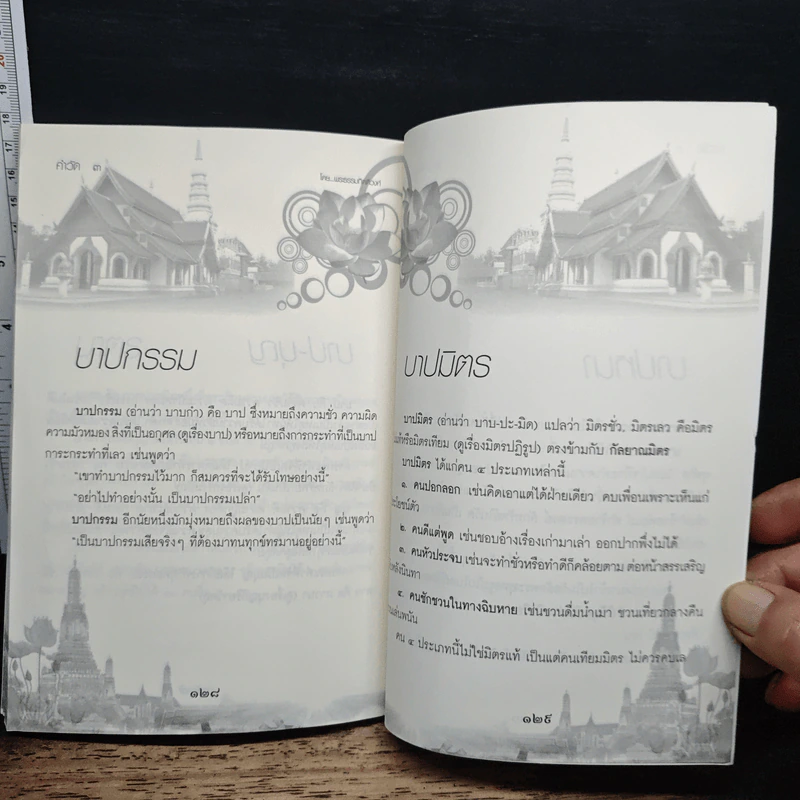 คำวัด ๓
โดย...พระธรรมกิตติวงศ์
บาปกรรม
บาปกรรม (อ่านว่า บาบกำ) คือ บาป ซึ่งหมายถึงความชั่ว ความผิด
ความมัวหมอง สิ่งที่เป็นอกุศล (ดูเรื่องบาป) หรือหมายถึงการกระทำที่เป็นบาป
การะกระทำที่เลว เช่นพูดว่า
"เขาทำบาปกรรมไว้มาก ก็สมควรที่จะได้รับโทษอย่างนี้"
"อย่าไปทำอย่างนั้น เป็นบาปกรรมเปล่า"
บาปกรรม อีกนัยหนึ่งมักมุ่งหมายถึงผลของบาปเป็นนัยๆ เช่นพูดว่า
"เป็นบาปกรรมเสียจริงๆ ที่ต้องมาทนทุกข์ทรมานอยู่อย่างนี้"
๑๒๘
บาปมิตร
บาปมิตร (อ่านว่า บาบ-ปะ-มิด) แปลว่า มิตรชั่ว, มิตรเลว คือมิตร
หรือมิตรเทียม (ดูเรื่องมิตรปฏิรูป) ตรงข้ามกับ กัลยาณมิตร
บาปมิตร ได้แก่คน ๔ ประเภทเหล่านี้
๑. คนปอกลอก เช่นคิดเอาแต่ได้ฝ่ายเดียว คบเพื่อนเพราะเห็นแก่
ประโยชน์ตัว
๒. คนดีแต่พูด เช่นชอบอ้างเรื่องเก่ามาเล่า ออกปากพึ่งไม่ได้
๓. คนหัวประจบ เช่นจะทำชั่วหรือทำดีก็คล้อยตาม ต่อหน้าสรรเสริญ
หลังนินทา
๔. คนชักชวนในทางฉิบหาย เช่นชวนดื่มน้ำเมา ชวนเที่ยวกลางคืน
เล่นพนัน
คน ๔ ประเภทนี้ไม่ใช่มิตรแท้ เป็นแต่คนเทียมมิตร ไม่ควรคบเล
๑๒๙